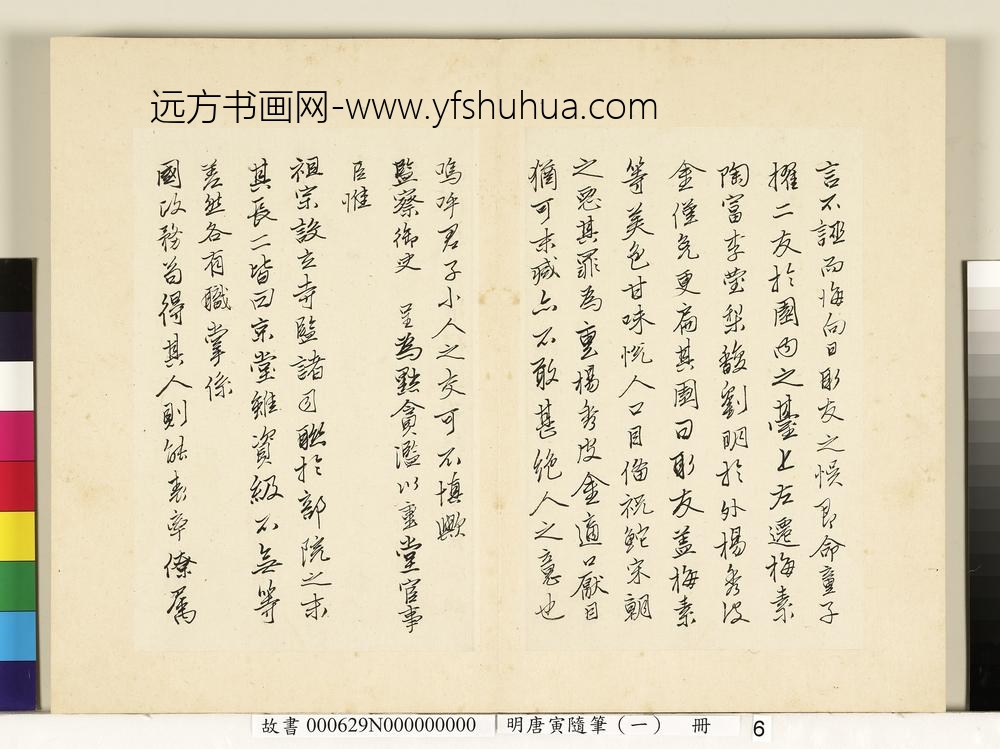 远方书画网-www.yfshuhua.com
言不誣而悔向日彫友之悞即命童子
擢二友於園內之臺上左遷梅素
陶富李瑩梨馥劉明於外楊秀皮
金僅免更扁其園曰彫友蓋梅素
等美色甘味悦人口目偕祝鮀宋朝
之惡其罪為重楊秀皮金適口厭目
猶可末減亦不敢甚絶人之意也
嗚呼君子小人之交可不慎歟
監察御史 呈為黜貪濫以重堂官事
臣惟
祖宗設立寺監諸司聯於部院之末
其長二皆曰京堂雖資級不無等
差然各有職掌係
國政務苟得其人則能表率僚屬
故書 000629N000000000 明唐寅隨筆（一） 冊 6